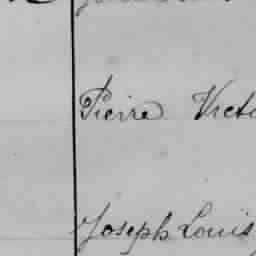 Pierre Vict
Joseph Louis